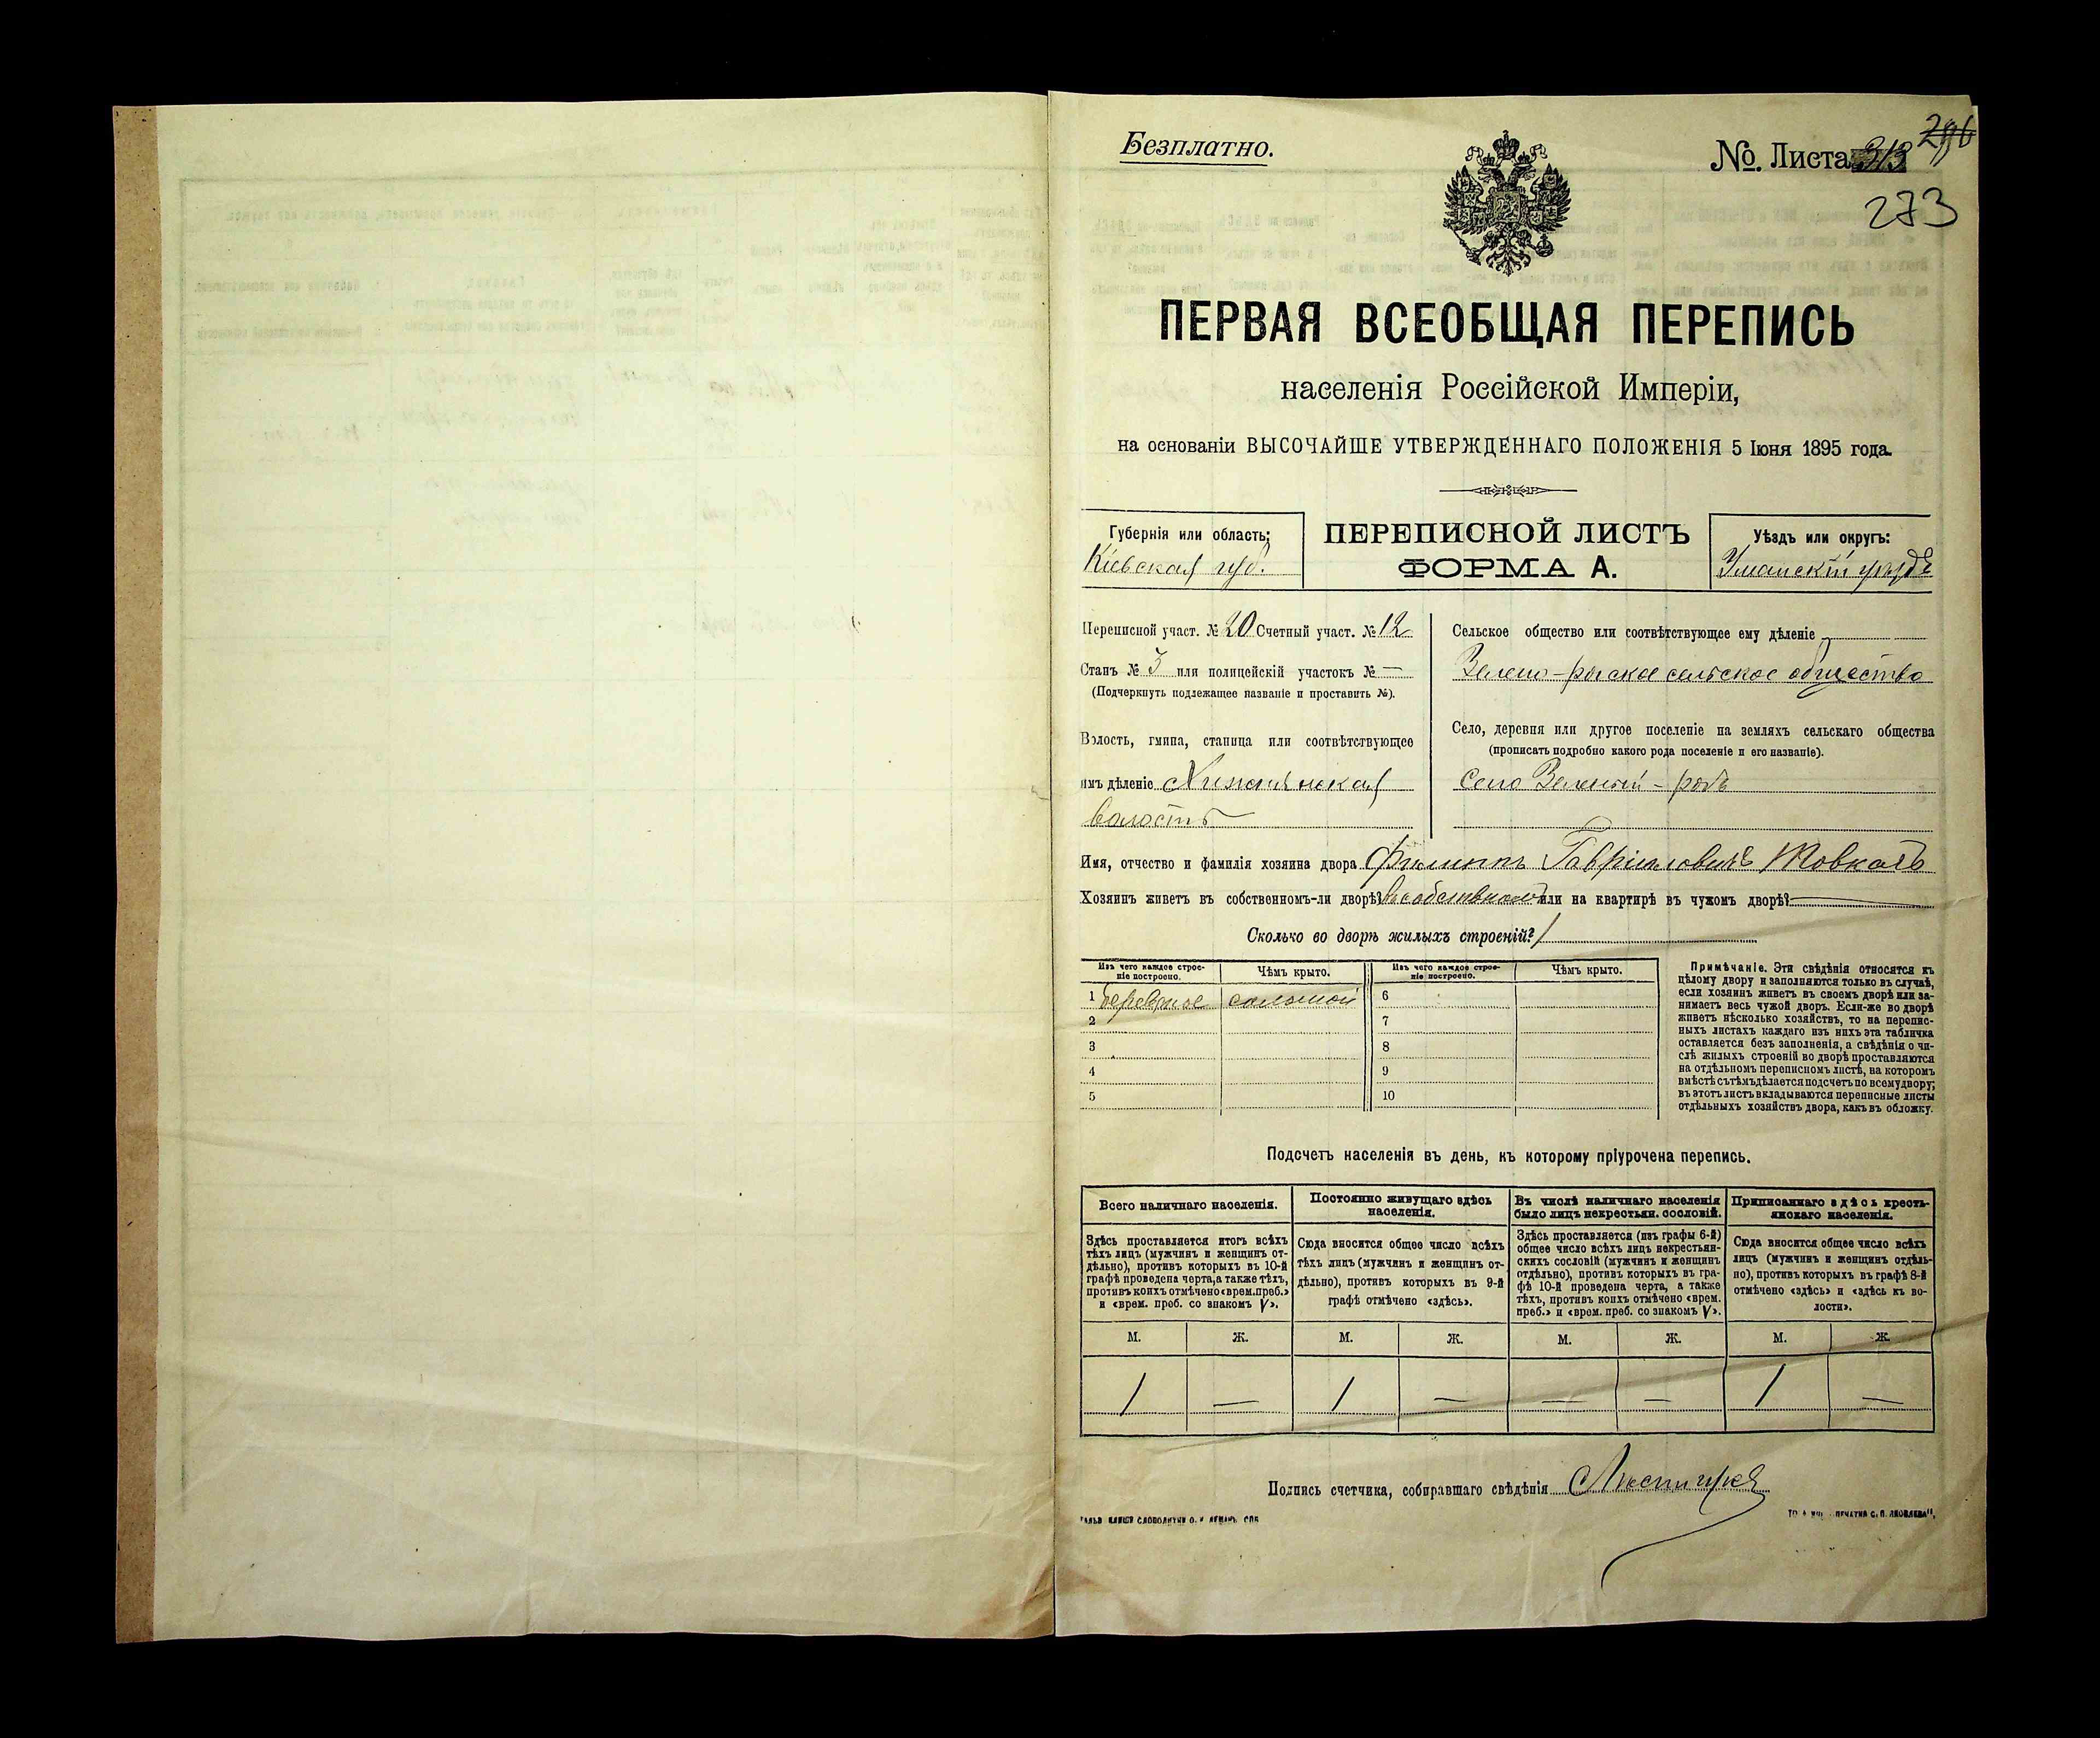 Безплатно.
№. Листа 313
296
273
ПЕРВАЯ ВСЕОБЩАЯ ПЕРЕПИСЬ
населенія Россійской Имперіи,
на основаніи ВЫСОЧАЙШЕ УТВЕРЖДЕННАГО ПОЛОЖЕНІЯ 5 Іюня 1895 года.
Губернія или область:
Кіевская губ.
ПЕРЕПИСНОЙ ЛИСТЪ
ФОРМА А.
Уѣздъ или округъ:
Уманскій уѣздъ
Переписной участ. № 20 Счетный участ. № 12
Станъ № 3 или полицейскій участокъ № —
(Подчеркнуть подлежащее названіе и проставить №).
Волость, гмина, станица или соотвѣтствующее
имъ дѣленіе
волость
Сельское общество или соотвѣтствующее ему дѣленіе
Зелено-рогское сельское общество
Село, деревня или другое поселеніе на земляхъ сельскаго общества
(прописать подробно какого рода поселеніе и его названіе).
Село Зеленый-рогъ
Имя, отчество и фамилія хозяина двора Филиппъ Гавріиловичъ Товкачъ
Хозяинъ живетъ въ собственномъ-ли дворѣ? въ собственномъ или на квартирѣ въ чужомъ дворѣ? —
Сколько во дворѣ жилыхъ строеній? 1
Изъ чего каждое строе-
ніе построено.
Чѣмъ крыто.
Изъ чего каждое строе-
ніе построено.
Чѣмъ крыто.
1 деревяное соломой 6
2 7
3 8
4 9
5 10
Примѣчаніе. Эти свѣдѣнія относятся къ
цѣлому двору и заполняются только въ случаѣ,
если хозяинъ живетъ въ своемъ дворѣ или за-
нимаетъ весь чужой дворъ. Если-же во дворѣ
живетъ нѣсколько хозяйствъ, то на перепис-
ныхъ листахъ каждаго изъ нихъ эта табличка
оставляется безъ заполненія, а свѣдѣнія о чи-
слѣ жилыхъ строеній во дворѣ проставляются
на отдѣльномъ переписномъ листѣ, на которомъ
вмѣстѣ съ тѣмъ дѣлается подсчетъ по всему двору;
въ этотъ листъ вкладываются переписные листы
отдѣльныхъ хозяйствъ двора, какъ въ обложку.
Подсчетъ населенія въ день, къ которому пріурочена перепись.
Всего наличнаго населенія.
Здѣсь проставляется итогъ всѣхъ
тѣхъ лицъ (мужчинъ и женщинъ от-
дѣльно), противъ которыхъ въ 10-й
графѣ проведена черта, а также тѣхъ,
противъ коихъ отмѣчено «врем. преб.»
и «врем. преб. со знакомъ V».
Постоянно живущаго здѣсь
населенія.
Сюда вносится общее число всѣхъ
тѣхъ лицъ (мужчинъ и женщинъ от-
дѣльно), противъ которыхъ въ 9-й
графѣ отмѣчено «здѣсь».
Въ числѣ наличнаго населенія
было лицъ некрестьян. сословій.
Здѣсь проставляется (изъ графы 6-й)
общее число всѣхъ лицъ некрестьян-
скихъ сословій (мужчинъ и женщинъ
отдѣльно), противъ которыхъ въ гра-
фѣ 10-й проведена черта, а также
тѣхъ, противъ коихъ отмѣчено «врем.
преб.» и «врем. преб. со знакомъ V».
Приписаннаго здѣсь кресть-
янскаго населенія.
Сюда вносится общее число всѣхъ
лицъ (мужчинъ и женщинъ отдѣль-
но), противъ которыхъ въ графѣ 8-й
отмѣчено «здѣсь» и «здѣсь къ во-
лости».
М. Ж. М. Ж. М. Ж. М. Ж.
1 — 1 — — — 1 —
Подпись счетчика, собиравшаго свѣдѣнія